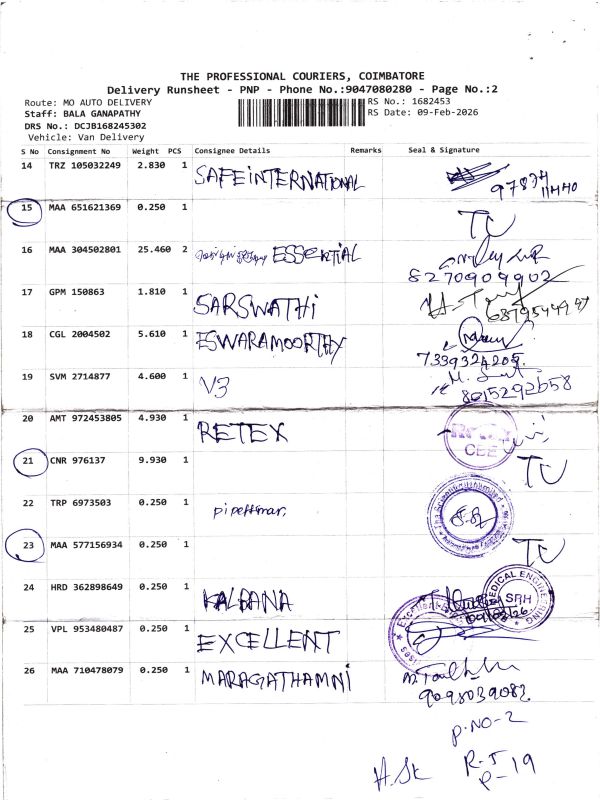 THE PROFESSIONAL COURIERS, COIMBATORE
Delivery Runsheet - PNP - Phone No.:9047080280 - Page No.:2
Route: MO AUTO DELIVERY RS No.: 1682453
Staff: BALA GANAPATHY RS Date: 09-Feb-2026
DRS No.: DCJB168245302
Vehicle: Van Delivery
S No Consignment No Weight PCS Consignee Details Remarks Seal & Signature
14 TRZ 105032249 2.830 1 SAFEINTERNATIONAL
15 MAA 651621369 0.250 1 TC
16 MAA 304502801 25.460 2 ESSENTIAL
8270909902
17 GPM 150863 1.810 1 SARSWATHI
18 CGL 2004502 5.610 1 ESWARAMOORTHY
7339324205
19 SVM 2714877 4.600 1 V3
8015292658
20 AMT 972453805 4.930 1 RETEX
CBE
21 CNR 976137 9.930 1 TC
22 TRP 6973503 0.250 1
23 MAA 577156934 0.250 1 TC
24 HRD 362898649 0.250 1 KALPANA
MEDICAL ENGINEERING SRH
25 VPL 953480487 0.250 1 EXCELLENT
26 MAA 710478079 0.250 1 MARAGATHAMNI
9095039082
P.NO-2
R.S
P-19